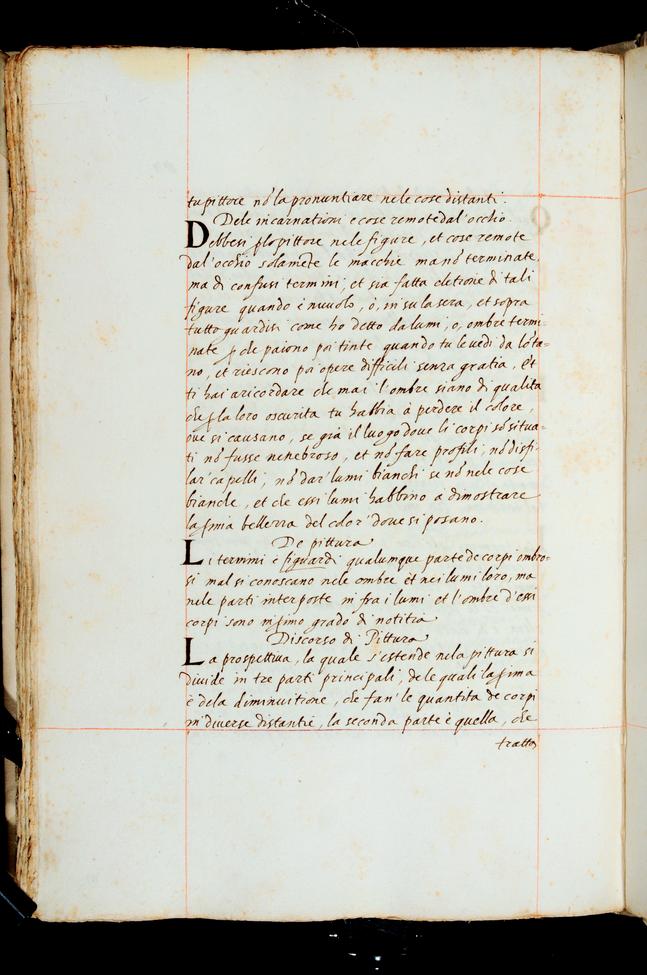 tu pittore nõ la pronuntiare nele cose distanti.
Dele incarnationi e cose remote dal'occhio.
Debbesi plo pittore nele figure, et cose remote
dal'occhio solamẽte le macchie ma nõ terminate,
ma di confusi termini, et sia fatta eletione di tali
figure quando è nuvolo, ò, in su la sera, et sopra
tutto guardisi come ho detto da lumi, o, ombre termi=
nate p che paiono poi tinte quando tu le vedi da lõta=
no, et riescono poi opere difficili senza gratia, Et
ti hai a ricordare che mai l'ombre siano di qualita
che p la loro oscurita tu habbia à perdere il colore,
ove si causano, se già il luogo dove li corpi sõ situa=
ti nõ fusse nenebroso, et nõ fare profili, nõ disfi=
lar' capelli, nõ dar' lumi bianchi se nõ nele cose
bianche, et che essi lumi habbino a dimostrare
la p̃ma bellezza del color' dove si posano.
De pittura
Li termini è figuardi qualumque parte de corpi ombro=
si mal si conoscano nele ombre èt nei lumi loro, ma
nele parti interposte in fra i lumi et l'ombre d'essi
corpi sono in p̃mo grado di notitia
Discorso di Pittura
La prospettiva, la quale s'estende nela pittura si
divide in tre parti principali, dele quali la p̃ima
è dela diminuitione, che fan' le quantita de corpi
in diverse distantie, la seconda parte è quella, che
tratta